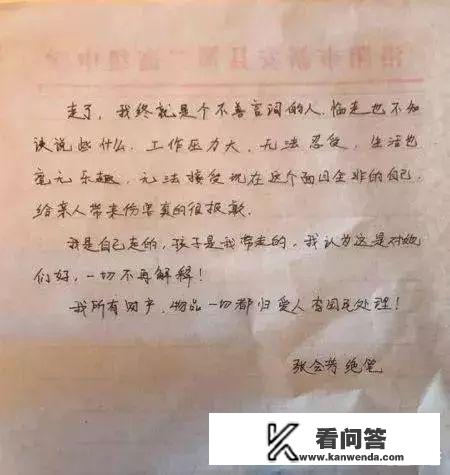 走了,我终就是个不善言词的人,临走也不知
该说些什么.工作压力大,无法忍受,生活也
毫无乐趣,无法接受现在这个面目全非的自己,
给亲人带来伤害真的很报歉.
我是自己走的,孩子是我带走的,我认为这是对她
们好,一切不再解释!
我所有财产,物品一切都归爱人 处理!
张会芳 绝笔
看问答
www.kanwenda.com